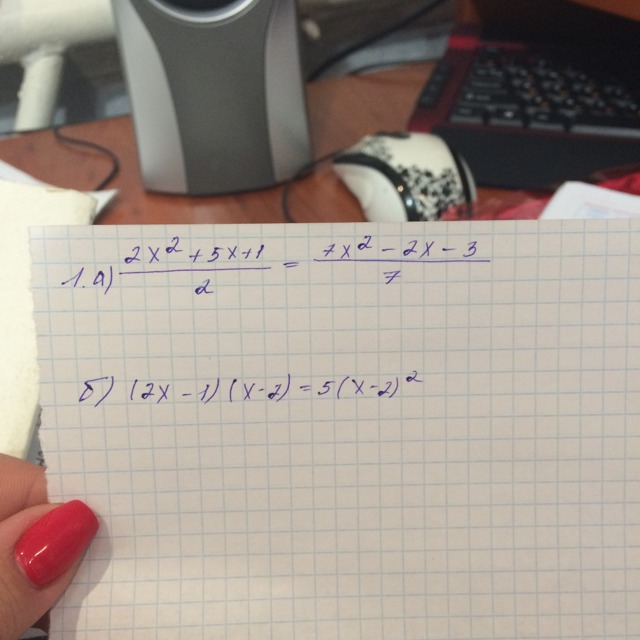 1. а) (2x² + 5x + 1)/2 = (7x² - 2x - 3)/7
б) (2x - 1)(x - 2) = 5(x - 2)²